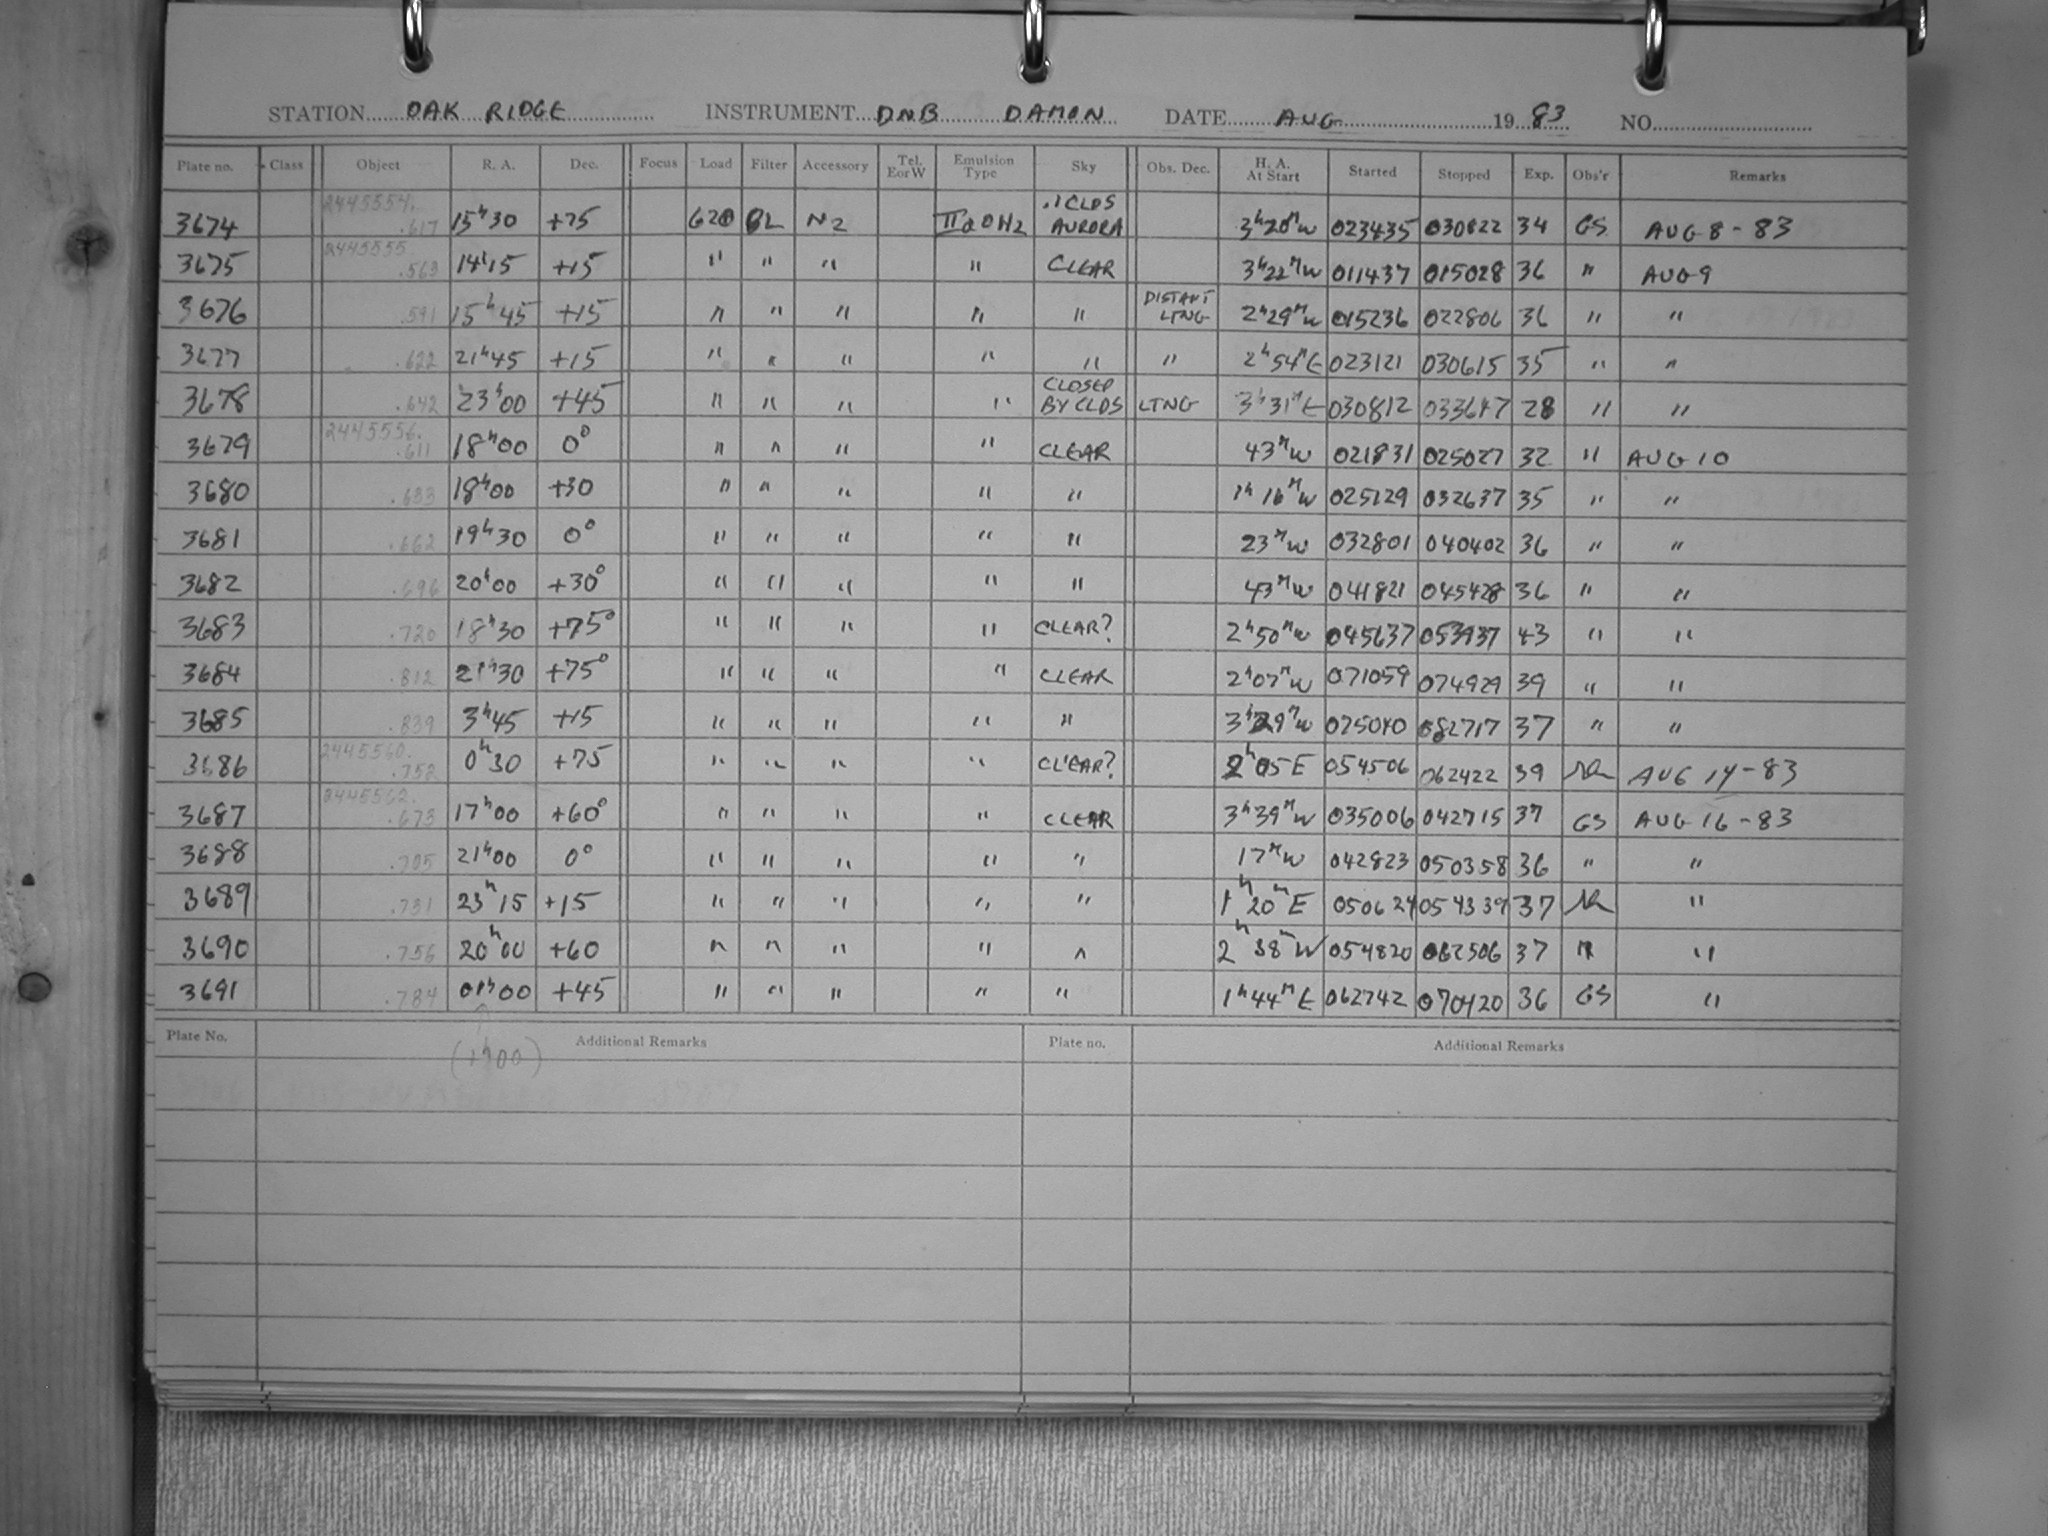 STATION OAK RIDGE INSTRUMENT DNB DAMON DATE AUG 19 83 NO.
Plate no. Class Object R. A. Dec. Focus Load Filter Accessory Tel. E or W Emulsion Type Sky Obs. Dec. H. A. At Start Started Stopped Exp. Obs'r Remarks
3674 2445554. .617 15h30 +75 620 BL N2 IIaOH2 .1 CLDS AURORA 3h20m W 023435 030822 34 GS AUG 8 - 83
3675 2445555 .563 14h15 +15 " " " " CLEAR 3h22m W 011437 015028 36 " AUG 9
3676 .591 15h45 +15 " " " " " DISTANT LTNG 2h29m W 015236 022806 36 " "
3677 .622 21h45 +15 " " " " " " 2h54m E 023121 030615 35 " "
3678 .642 23h00 +45 " " " " CLOSED BY CLDS LTNG 3h31m E 030812 033647 28 " "
3679 2445556. .611 18h00 0° " " " " CLEAR 43m W 021831 025027 32 " AUG 10
3680 .633 18h00 +30 " " " " " 1h16m W 025129 032637 35 " "
3681 .662 19h30 0° " " " " " 23m W 032801 040402 36 " "
3682 .696 20h00 +30° " " " " " 43m W 041821 045428 36 " "
3683 .720 18h30 +75° " " " " CLEAR? 2h50m W 045637 053937 43 " "
3684 .812 21h30 +75° " " " " CLEAR 2h07m W 071059 074929 39 " "
3685 .839 3h45 +15 " " " " " 3h29m W 075040 082717 37 " "
3686 2445560. .752 0h30 +75 " " " " CLEAR? 2h05 E 054506 062422 39 AUG 14 - 83
3687 2445562. .673 17h00 +60° " " " " CLEAR 3h39m W 035006 042715 37 GS AUG 16 - 83
3688 .705 21h00 0° " " " " " 17m W 042823 050358 36 " "
3689 .731 23h15 +15 " " " " " 1h20m E 050624 054339 37 "
3690 .756 20h00 +60 " " " " " 2h38m W 054820 062506 37 " "
3691 .784 01h00 +45 " " " " " 1h44m E 062742 070420 36 GS "
Plate No. Additional Remarks Plate no. Additional Remarks
(1h00)